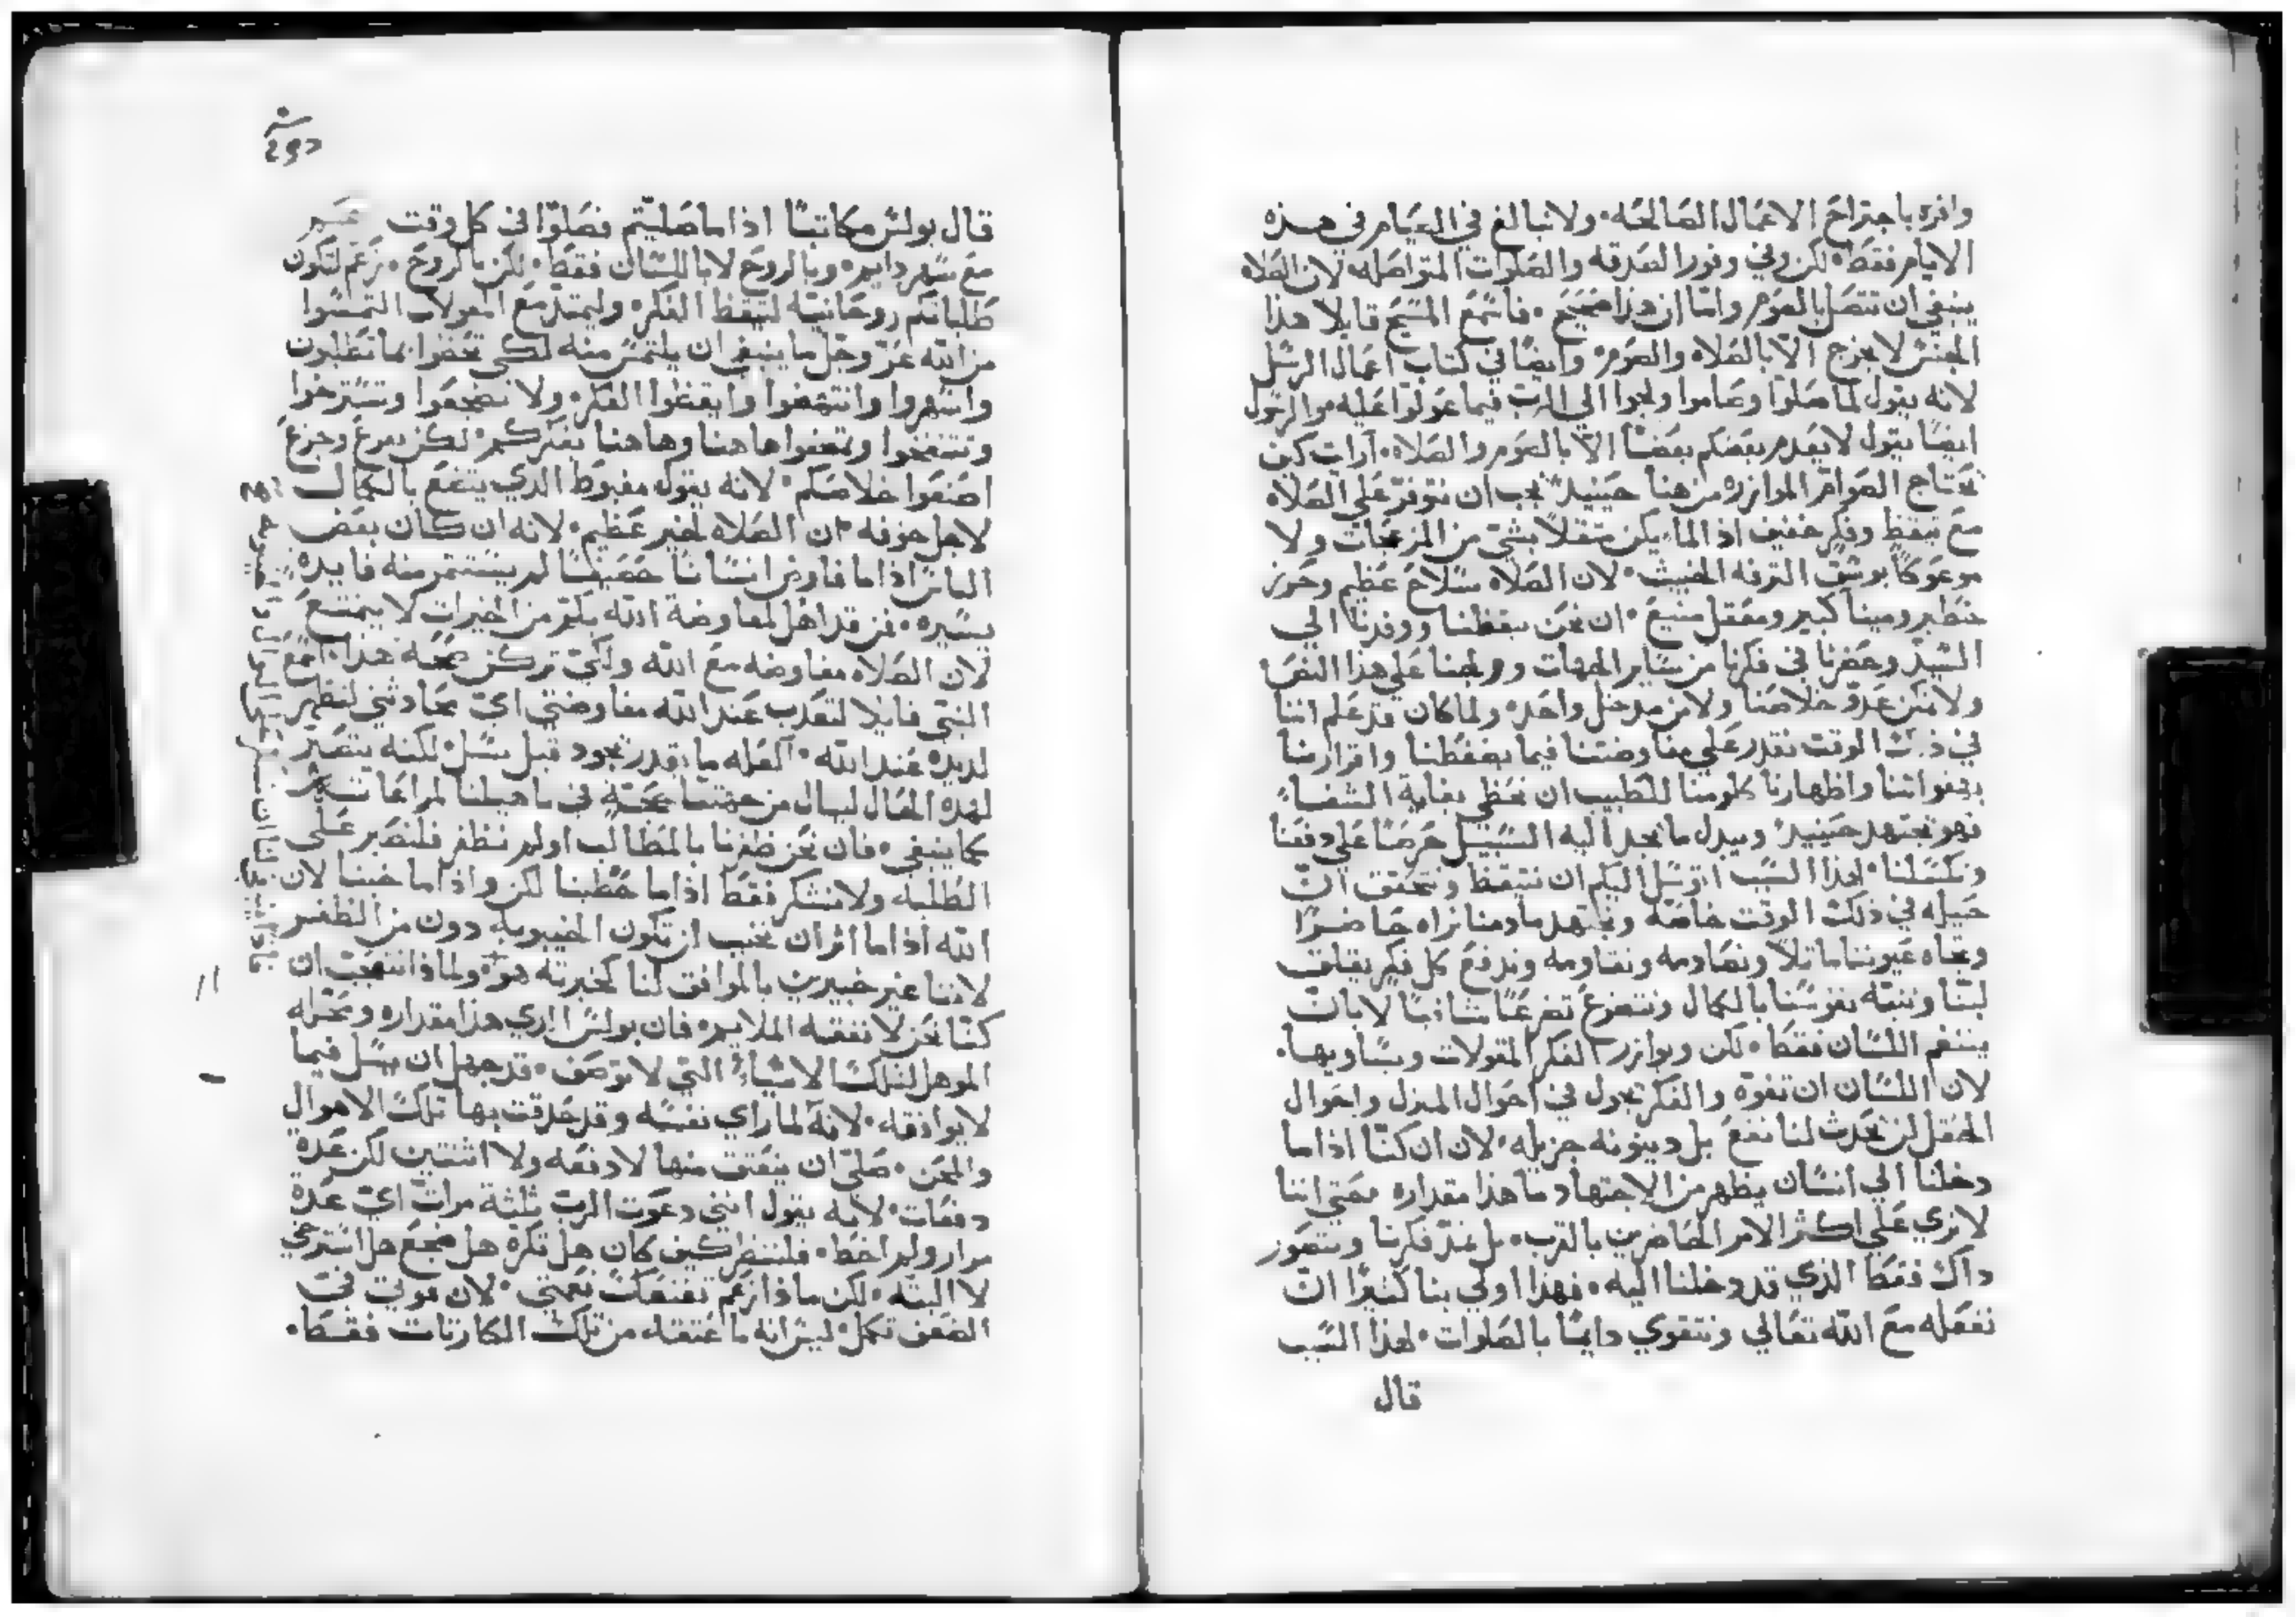 وافره باجتراح الاعمال الصالحه ولا نبالغ في الصيام في هذه
الايام فقط لكن وفي وفور الصدقه والصلوات المتواصله لان الصلاه
ينبغي ان تتصل بالصوم واما ان هذا صحيح فاسمع المسيح قايلا هذا
الجنس لا يخرج الا بالصلاه والصوم وايضا في كتاب اعمال الرسل
لانه يقول لما صلوا وصاموا ولجوا الي الرب فيما عولوا عليه والرسول
ايضا يقول لا يعدم بعضكم بعضا الا بالصوم والصلاه ارايت كيف
تحتاج الصوام الموازره من هنا حينيذ يجب ان نتوفر علي الصلاه
مع تيقظ وفكر خفيف اذا لم يكن مثقلا بشي من المزعجات ولا
موعوكا بوشق الترفه الخبيث لان الصلاه سلاح عظيم وحرز
خطير ومينا كبير ومعقل منيع ان نحن تيقظنا ووفدنا الي
السيد وحضرنا في فكرنا من ساير الجهات وولجنا علي هذا النص
ولا نمكن عدو خلاصنا ولا من مدخل واحد ولما كان قد علم اننا
في ذلك الوقت نقدر علي مفاوضتنا فيما يضغطنا واقرارنا
بهفواتنا واظهارنا كلومنا للطبيب ان نحظي بغاية الشفاء
فهو يجتهد حينيذ ويبدل ما يجد اليه السبيل حرصا علي دفعنا
وتكسلنا لهذا السبب اتوسل اليكم ان نتيقظ ونتحقق ان
حيله في ذلك الوقت خاصه ونجتهد مادمنا نراه حاضرا
وتجاه عيوننا ماثلا ونصادمه ونقاومه وندفع كل فكر يقلق
لبنا وننبه نفوسنا بالكمال ونتضرع تضرعا مثاقبا لا بان
يتنغم اللسان فقط لكن ويوازر الفكر المقولات ويساويها
لان اللسان ان تفوه والفكر يجول في احوال المنزل واحوال
الحقل لن يحدث لنا نفع بل دينونه جزيله لان ان كنا اذا ما
دخلنا الي انسان يظهر من الاجتهاد ما هذا مقداره حتي اننا
لا نري علي اكثر الامر الحاضرين بالقرب بل نمد فكرنا ونتصور
داك فقط الذي قد دخلنا اليه فهذا اولي بنا كثيرا ان
نفعله مع الله تعالي ونتقوي دايما بالصلوات لهذا السبب
قال
قال بولس مكاتبا اذا ما صليتم فصلوا في كل وقت
مع سهر دايم وبالروح لا باللسان فقط لكن بالروح زعم لتكون
طلباتكم روحانيه لتيقظ الفكر وليمتد مع المقولات التمسوا
من الله عز وجل ما ينبغي ان يلتمس منه لكي تحضوا بما تطلبون
واسهروا وانتهضوا وايقظوا الفكر ولا تضجعوا وتسترخوا
وتتنفخوا وتهفوا هاهنا وهاهنا بفكركم لكن بفزع وجزع
اصنعوا خلاصكم لانه يقول مغبوط الذي يتفع بالكمال
لاجل خوفه ان الصلاه لخير عظيم لانه ان كان بعض
الناس اذا ما فاوض انسانا حصيفا لم يستثمر منه فايده
يسيره فمن قد اهل لمفاوضة الله بكم من الخيرات لا يتمتع
لان الصلاه مفاوضه مع الله ولكي تركن صحة هذا اسمع
النبي قايلا لتعذب عند الله مفاوضتي اي محادثتي لتظهر
لديده عند الله العله ما يقدر يجود قبل يسل لكنه يتصبر
لهذه الحال لينال من جهتنا حجة في تاهيلنا لمراعاته
كما ينبغي فان نحن ظفرنا بالمطالب او لم نظفر فلنصبر علي
الطلبه ولا نشكر فقط اذا ما حظينا لكن واذا ما خبنا لان
الله اذا ما اثر ان نخيب لن تكون الخيبوبه دون من الظفر
لاننا غير خبيرين بالموافق لنا كخبرته هو ولماذا نتعجب ان
كنا نحن لا نفقه الملايم فان بولس الذي هذا مقداره ومحله
الموهل لتلك الاشياء التي لا توصف قد جهل ان يسل فيما
لا يوافقه لانه لما راي نفسه وقد حدقت بها تلك الاهوال
والمحن صلي ان ينعتق منها لا دفعه ولا اثنتين لكن عدة
دفعات لانه يقول انني دعوت الرب ثلثة مرات اي عدة
مرار ولم احظ فلننظر كيف كان هل تكره هل ضجع هل استرخي
لا البته لكن ماذا زعم تقنعك نعمتي لان قوتي في
الضعف تكمل ليس انه ما عتقه من تلك الكارثات فقط